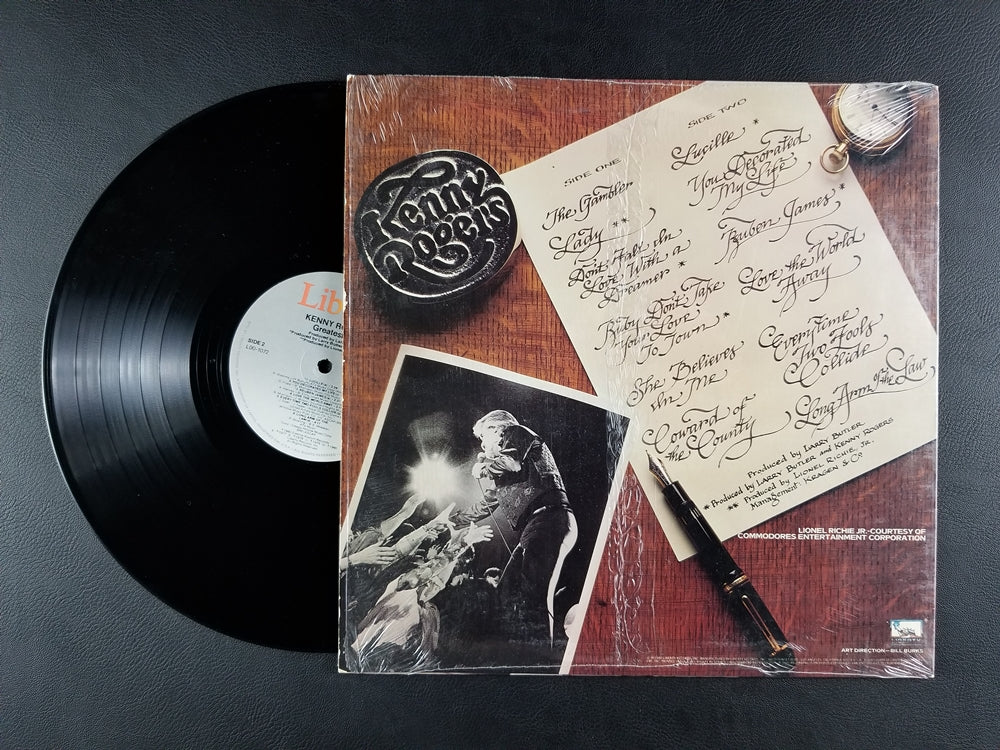 Kenny
Rogers
SIDE ONE
The Gambler
Lady **
Don't Fall In
Love With a
Dreamer *
Ruby Don't Take
Your Love
To Town *
She Believes
In Me
Coward of
the County
SIDE TWO
Lucille *
You Decorated
My Life
Reuben James *
Love the World
Away
Everytime
Two Fools
Collide
Long Arm of the Law
Produced by LARRY BUTLER
* Produced by LARRY BUTLER and KENNY ROGERS
** Produced by LIONEL RICHIE, JR.
Management: KRAGEN & Co
LIONEL RICHIE JR.-COURTESY OF
COMMODORES ENTERTAINMENT CORPORATION
LIBERTY
ART DIRECTION—BILL BURKS
Lib
KENNY R
Greates
SIDE 2
LOO-1072